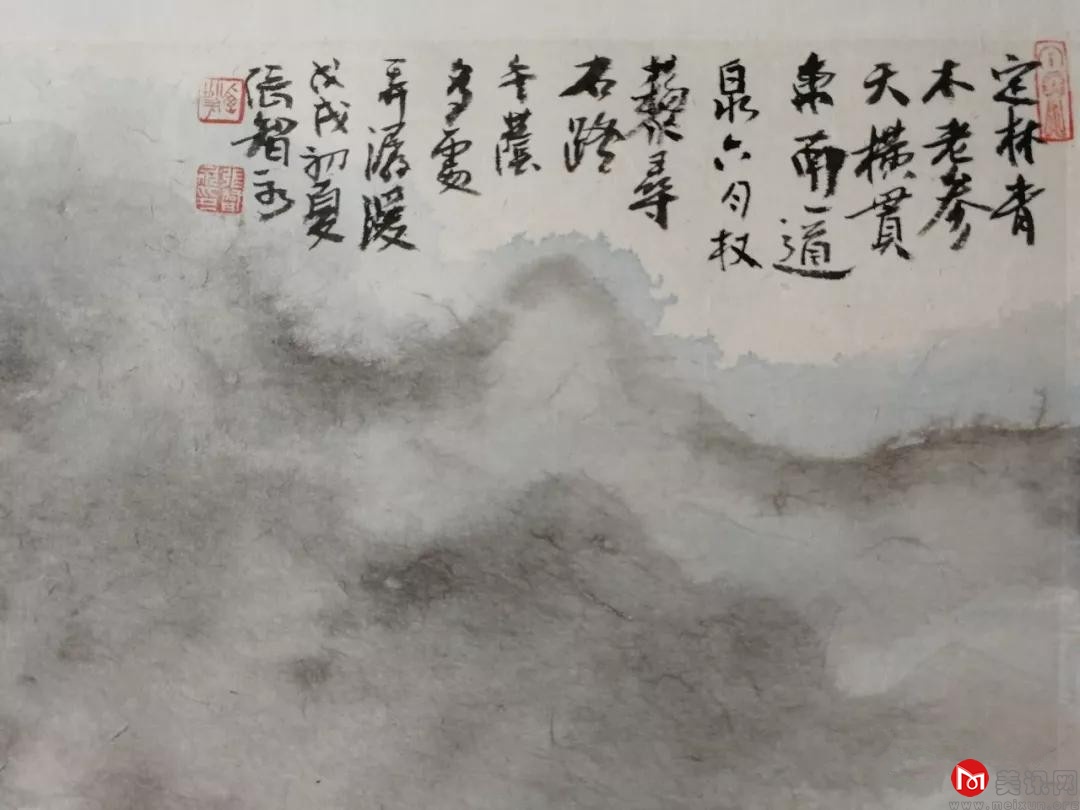 定林青
木老参
天橫貫
東南一道
泉六月杖
藜尋
石路
午蔭
多處
弄潺湲
戊戌初夏
張智
美讯网